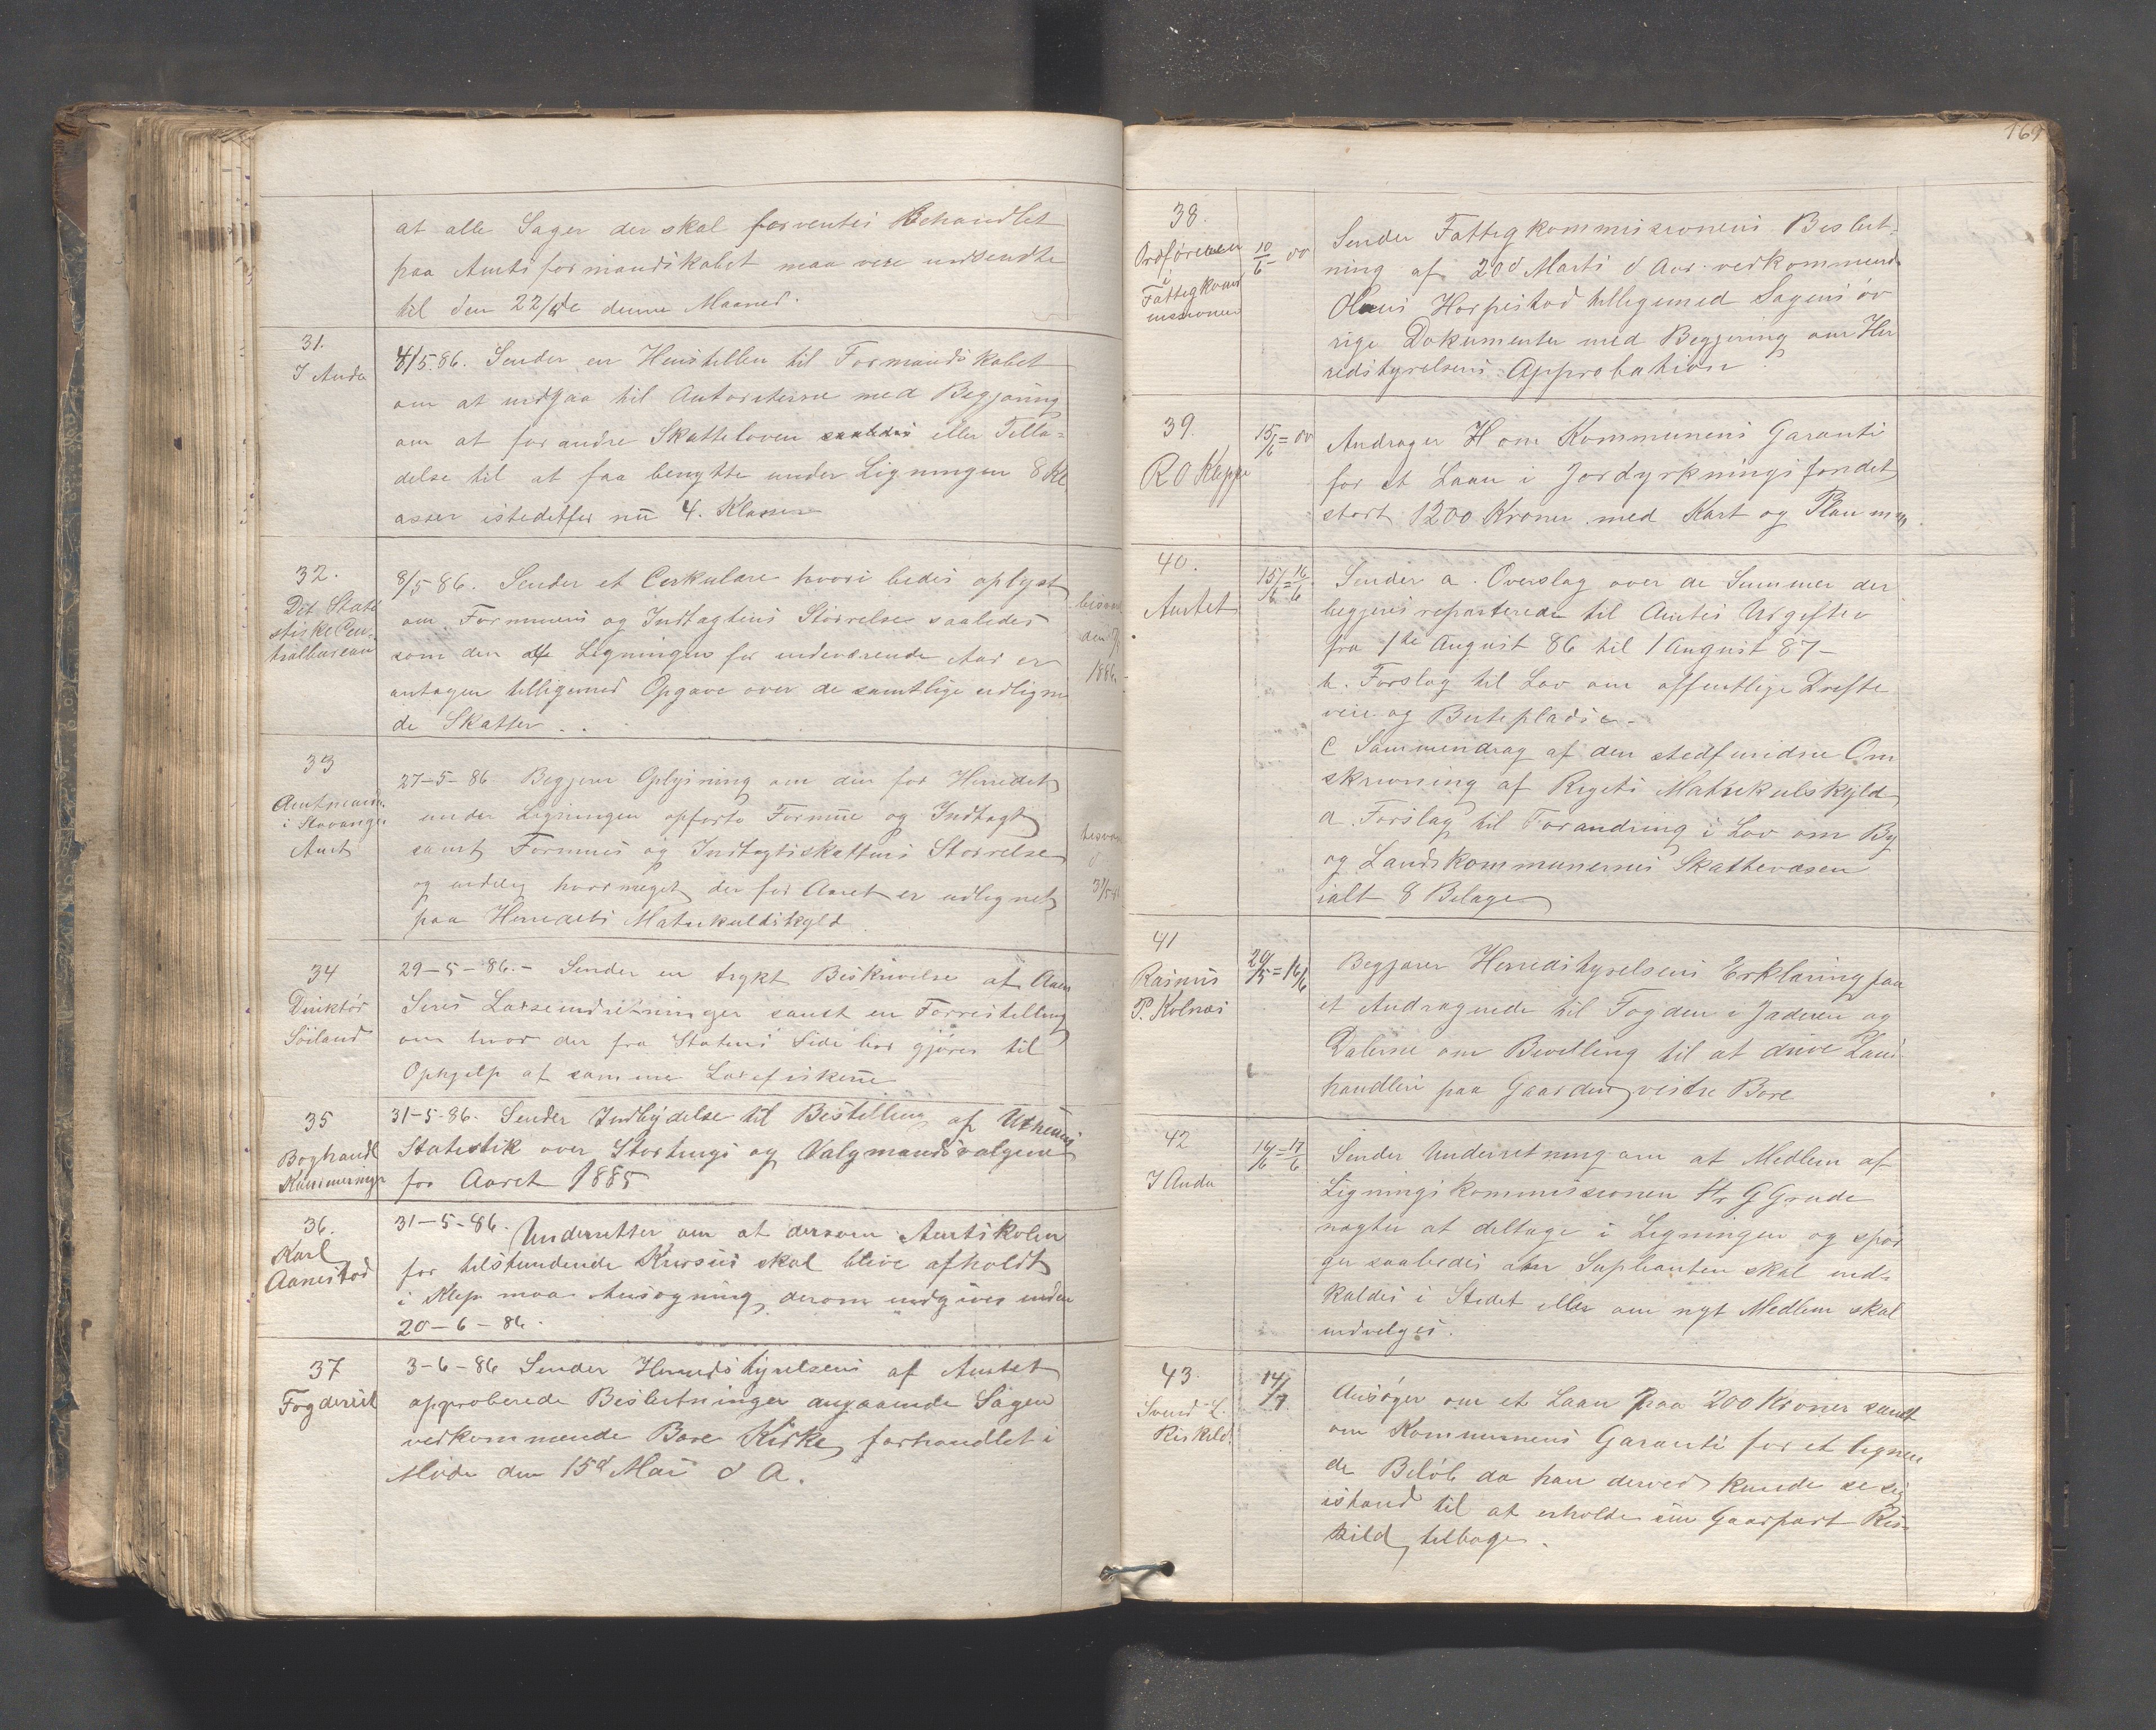 at alle Sager der skal forventes Behandlet
paa Amtsformandskabet maa vere indsendte
til den 22/5de denne Maaned.
31.
I Anda
4/5.86. Sender en Henstillen til Formandskabet
om at indgaa til Autoriterne med Begjøring
om at forandre Skatteloven saaledes eller Tilla=
delse til at faa benytte under Ligningen 8 Kl
asser istedetfor nu 4. Klasser
32.
Det Stati
stiske Cen-
tralbureau
8/5 86. Sender et Cirkulare hvori bedes oplyst
om Formuens og Indtagtens Størrelse saaledes
som den af Ligningen for indeværende Aar er
antagen tilligemed Opgave over de samtlige udlign
de Skatter
besvar
den
1886
33
Amtmanden
i Stavanger
Amt
27-5-86 Begjerer Oplysning om den for Herredet
under Ligningen opførte Formue og Indtagt
samt Formues og Indtagtsskattens Størrelse
og endelig hvormeget der for Aaret er udlignet
paa Herredets Matrikulskyld
besvar
d
34
Direktør
Söiland
29-5-86.- Sender en trykt Beskrivelse af Aaen
Sires Lakseindretninger samt en Forrestilling
om hvor der fra Statens Side bør gjöres til
Ophjelp af samme Laxefiskerie
35
Boghandl
Kammermeyer
31-5-86. Sender Indbydelse til Bestilling af Utheims
Statistik over Stortings og Valgmandsvalgene
for Aaret 1885
36.
Karl
Aanestad
31-5-86. Underretter om at dersom Amtskolen
for tilstundende Kursus skal blive afholdt
i Klep maa Ansøgning derom indgives inden
20-6-86.
37
Fogderiet
3-6-86 Sender Herredstyrelsens af Amtet
approberede Beslutninger angaaende Sagen
vedkommende Bore Kirke forhandlet i
Møde den 15d Mai d A.
169
38.
Ordføreren
i
Fattigkom
missionen
10/6 - oo
Sender Fattigkommissionens Beslut-
ning af 20d Marts d Aar vedkommende
Hans Horpestad tilligemed Sagens öv
rige Dokumenter med Begjering om Her
redstyrelsens Approbation
39.
R O Kleppe
15/6 = oo
Andrager H om Kommunens Garanti
for et Laan i Jordyrkningsfondet
stort 1200 Kroner med Kart og Plan m m
40.
Amtet
15/6 = 16/6
Sender a. Overslag over de Summer der
begjeres reparterede til Amtes Udgifter
fra 1te August 86 til 1 August 87-
b. Forslag til Lov om offentlige Drifte
veie og Beitepladse-
c Sammendrag af den stedfundne Om
skrivning af Rigets Matrikulskyld
d. Forslag til Forandring i Lov om By
og Landskommunernes Skattevæsen
ialt 8 Belage
41
Rasmus
P. Kolnæs
29/5 = 16/6
Begjærer Herredstyrelsens Erklæring paa
et Andragende til Fogden i Jæderen og
Dalerne om Bevilling til at drive Lan
handleri paa Gaarden vestre Bore
42
I Anda
16/6 = 17/6
Sender Underretning om at Medlem af
Ligningskommissionen Hr G Grude
nægter at deltage i Ligningen og spør
ger saaledes om Suplianten skal ind-
kaldes i Stedet eller om nyt Medlem skal
indvelges.
43.
Svend L.
Riskild.
14/7
Ansöger om et Laan paa 200 Kroner samt
om Kommunens Garanti for et lignen
de Belöb da han derved kunde se sig
istand til at erholde sin Gaarpart Ris-
kild tilbage.